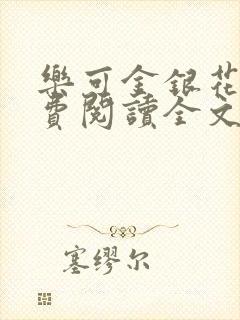 樂可金銀花
費閱讀全文
塞缪尔